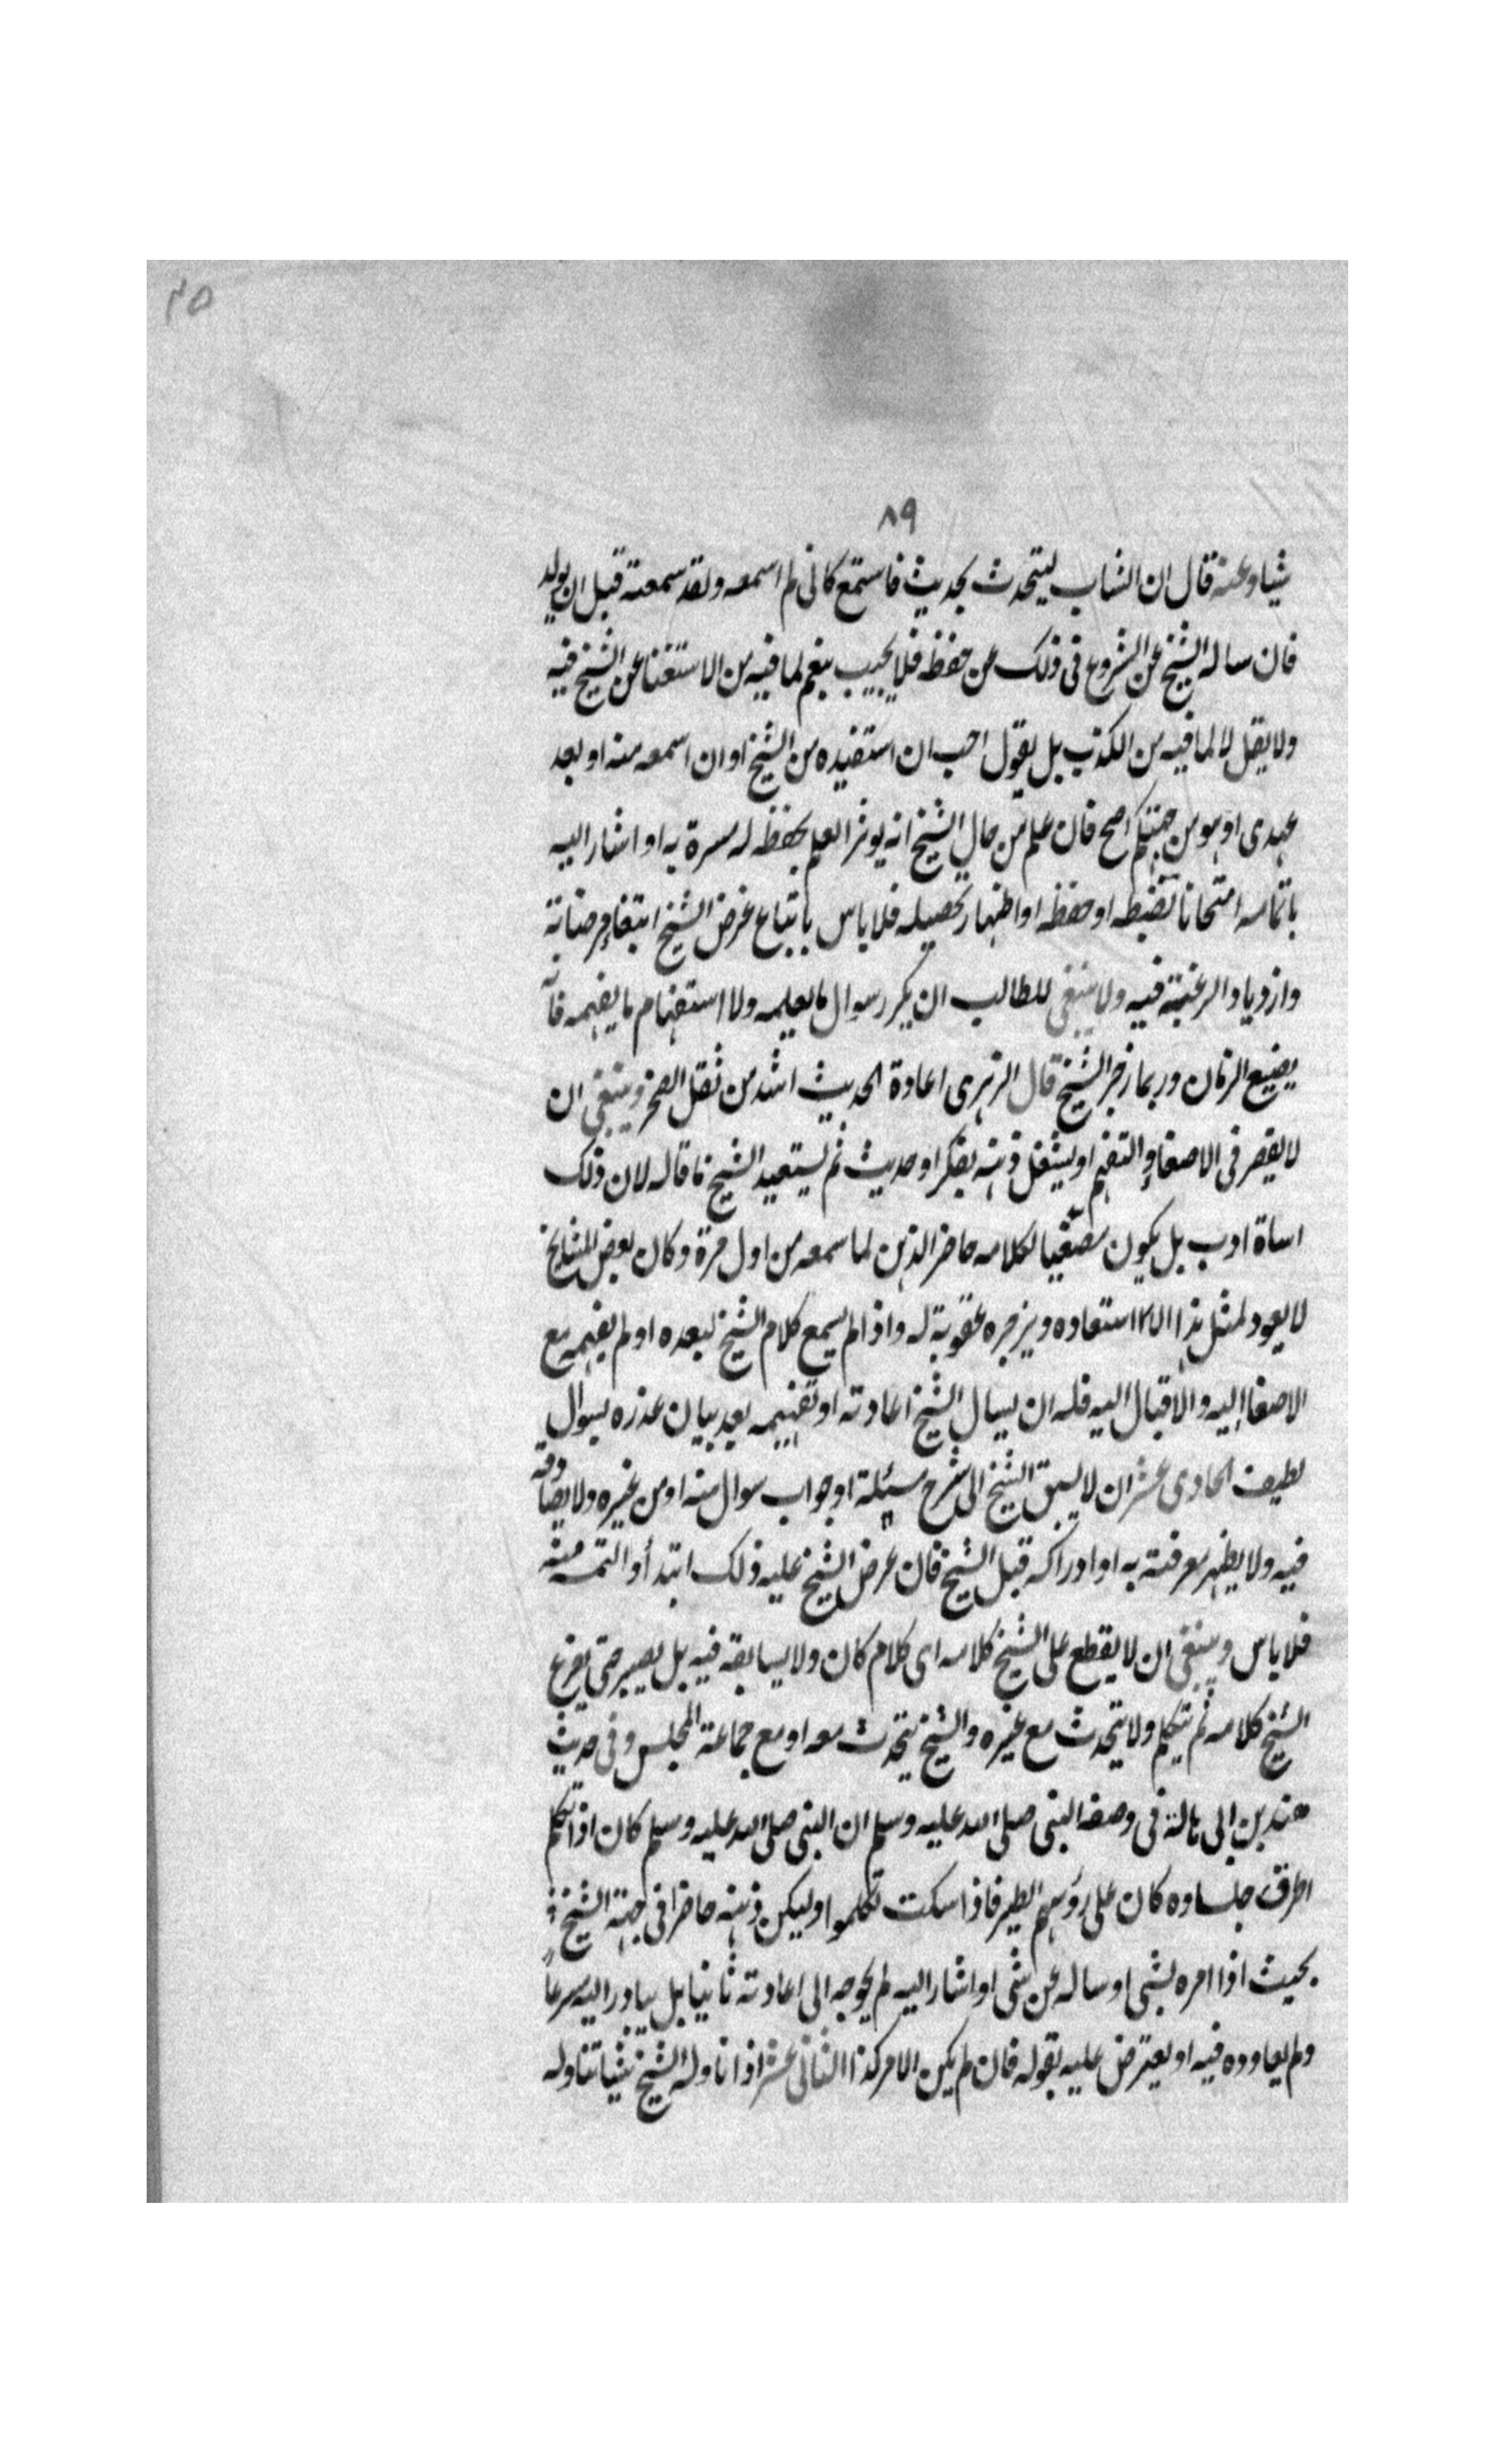 ٤٥
٨٩
شيا وعنه قال ان الشاب ليتحدث بحديث فاستمع كانى لم اسمعه ولقد سمعته قبل ان يولد
فان ساله الشيخ عن الشروع فى ذلك عن حفظه فلا يجيب بنعم لما فيه من الاستغنا عن الشيخ فيه
ولا يقل لا لما فيه من الكذب بل يقول احب ان استفيده من الشيخ او ان اسمعه منه او بعد
عهدى او هو من جهتكم اصح فان علم من حال الشيخ انه يوثر العلم بحفظه له مسرة به او اشار اليه
باتمامه امتحانا لضبطه او حفظه او اظهار تحصيله فلا باس باتباع غرض الشيخ ابتغاء مرضاته
وازدياد الرغبة فيه ولا ينبغى للطالب ان يكرر سوال ما يعلمه ولا استفهام ما يفهمه فانه
يضيع الزمان وربما زجر الشيخ قال الزهرى اعادة الحديث اشد من ثقل الصخر وينبغى ان
لا يقصر فى الاصغاء والتفهم او يشغل ذهنه بفكر او حديث ثم يستعيد الشيخ ما قاله لان ذلك
اساة ادب بل يكون مصغيا لكلامه حاضر الذهن لما سمعه من اول مرة وكان بعض المشايخ
لا يعود لمثل هذا اذا استعاده ويزجره عقوبة له واذا لم يسمع كلام الشيخ لبعده او لم يفهمه مع
الاصغا اليه والاقبال اليه فله ان يسال الشيخ اعادته او تفهيمه بعد بيان عذره بسوال
لطيف الحادى عشر ان لا يسبق الشيخ الى شرح مسئلة او جواب سوال منه او من غيره ولا يصادقه
فيه ولا يظهر معرفته به او ادراكه قبل الشيخ فان عرض الشيخ عليه ذلك ابتدأ والتمسه منه
فلا باس وينبغى ان لا يقطع على الشيخ كلامه اى كلام كان ولا يسابقه فيه بل يصبر حتى يفرغ
الشيخ كلامه ثم يتكلم ولا يتحدث مع غيره والشيخ يتحدث معه او مع جماعة المجلس وفى حديث
هند بن ابى هالة فى وصفه النبى صلى الله عليه وسلم ان النبى صلى الله عليه وسلم كان اذا تكلم
اطرق جلساوه كان على رؤسهم الطير فاذا سكت تكلموا وليكن ذهنه حاضرا فى جهة الشيخ
بحيث اذا امره بشى او ساله عن شى او اشار اليه لم يحوجه الى اعادته ثانيا بل يبادر اليه مسرعاً
ولم يعاوده فيه او يعترض عليه بقوله فان لم يكن الامر كذا الثانى عشر اذا ناوله الشيخ شيا تناوله